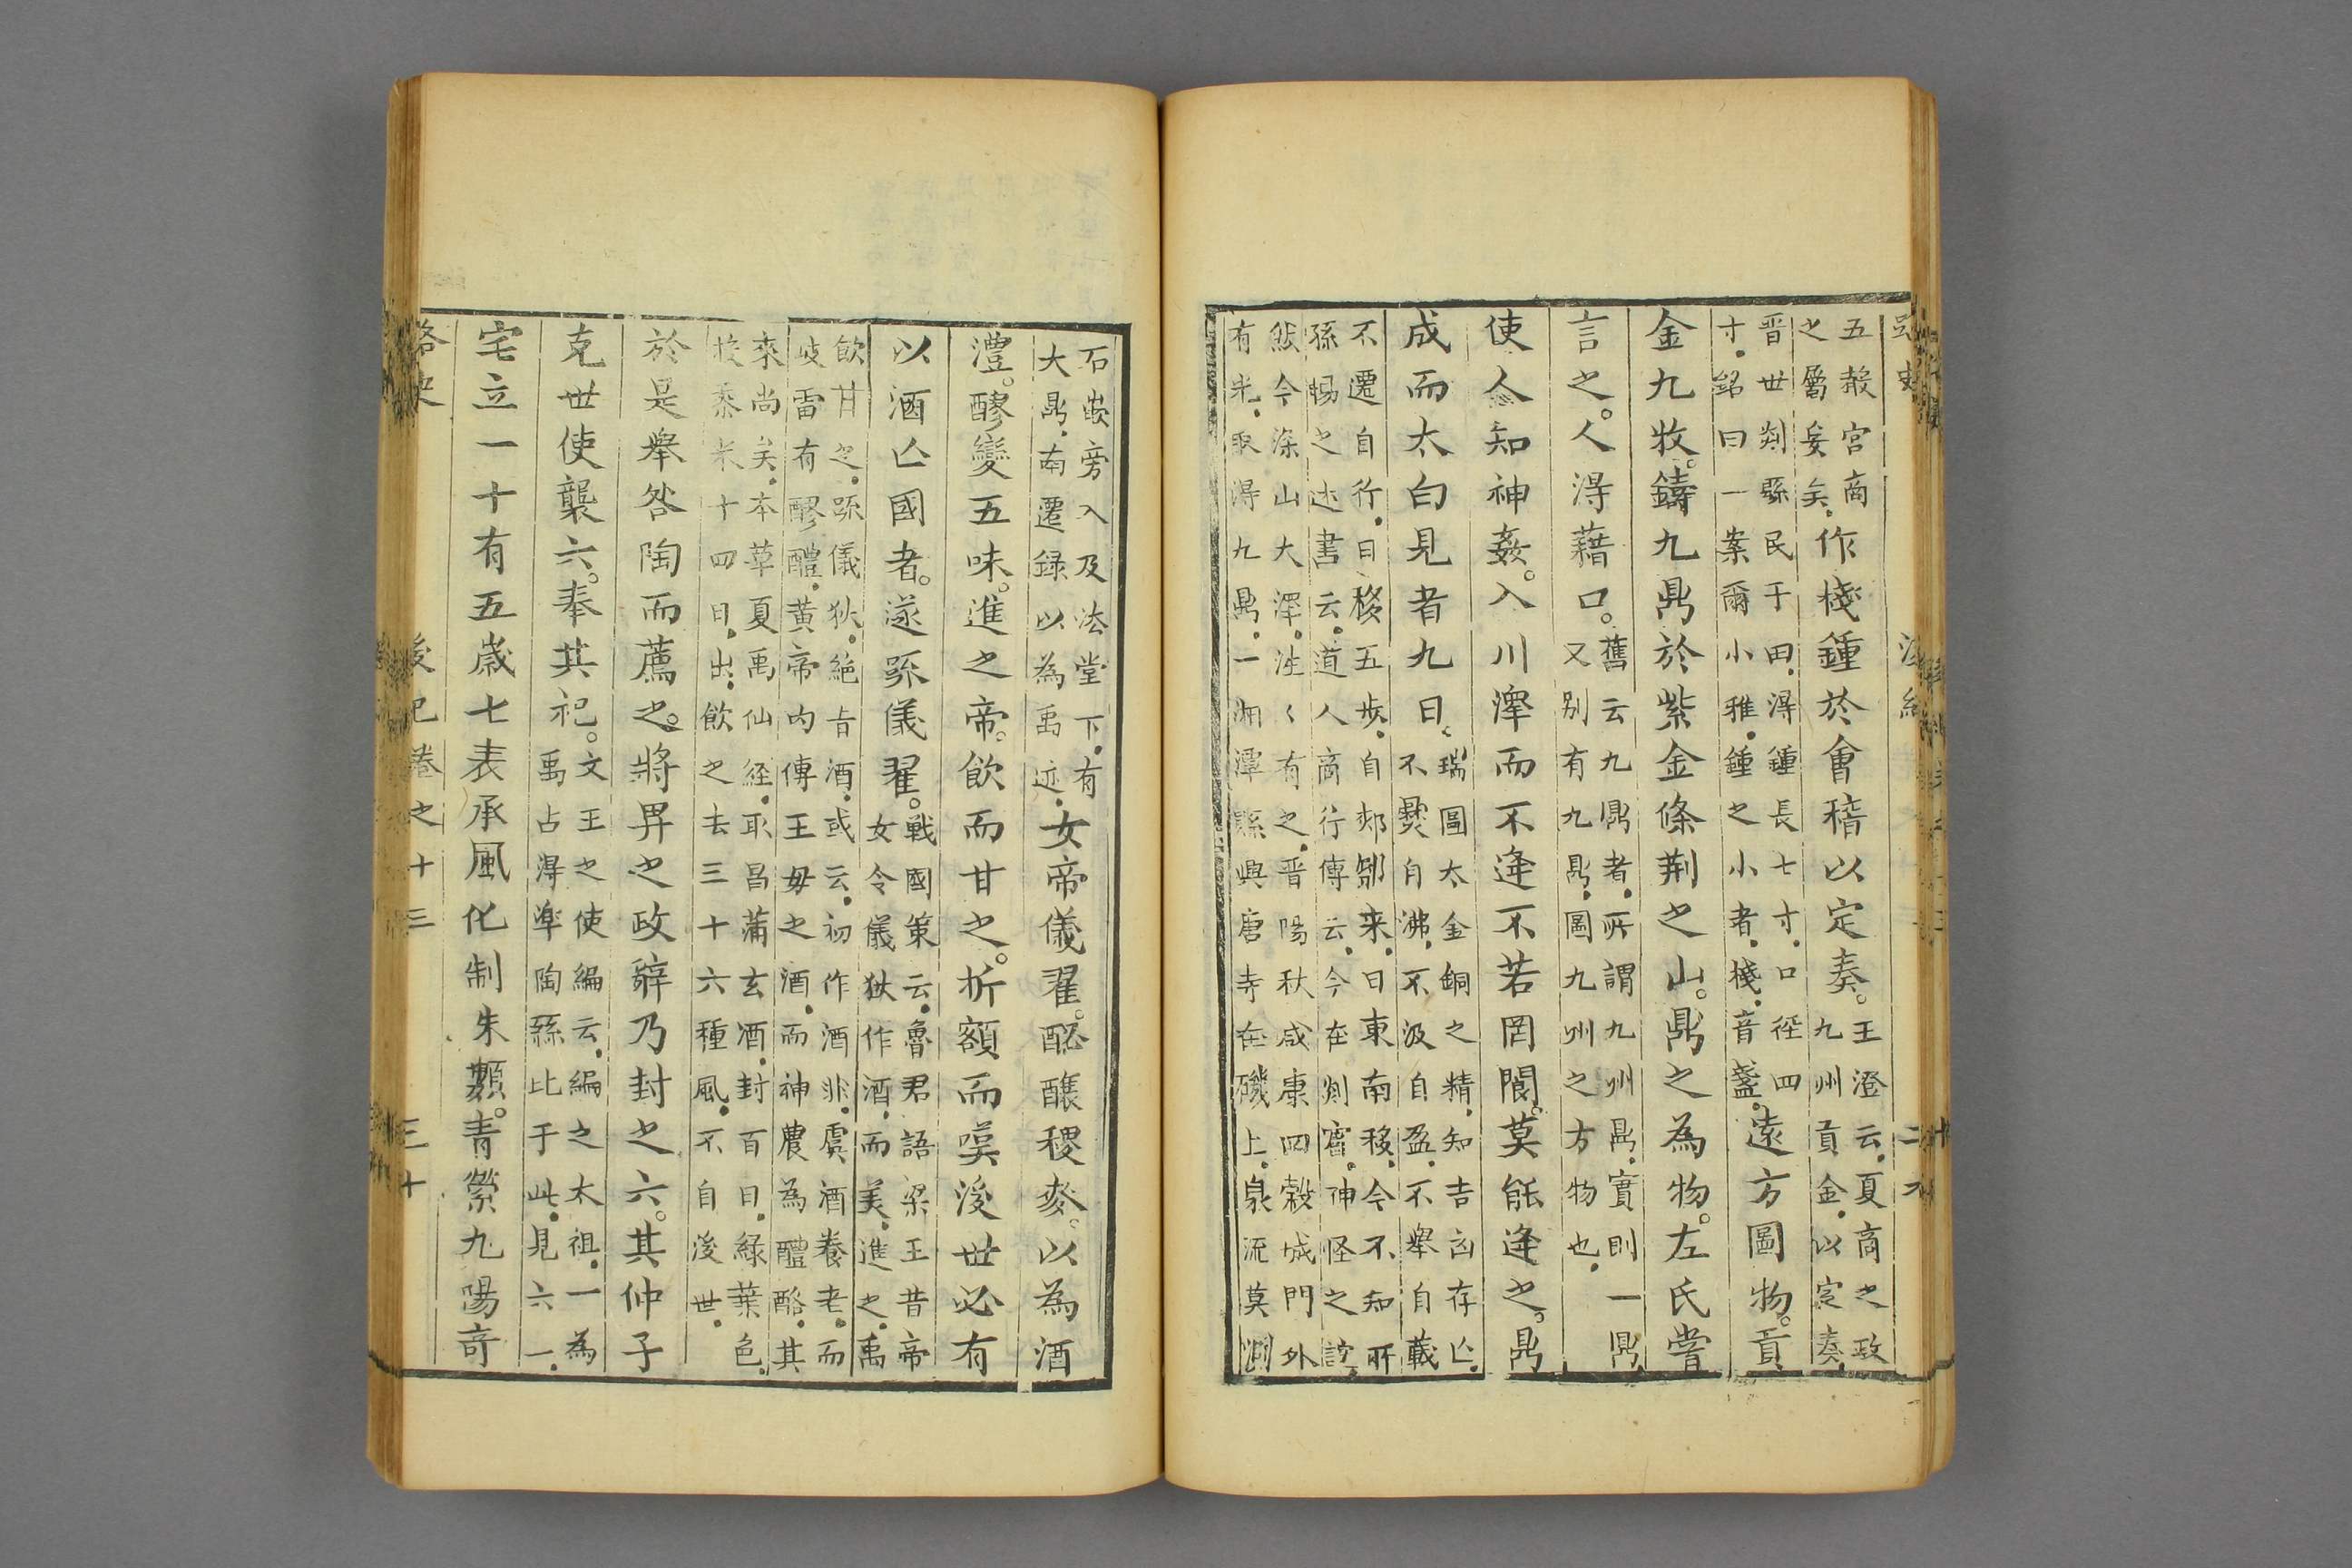 五聲宮商
之屬妄矣
作棧鍾於會稽以定奏
王澄云夏商之政
九州貢金以定奏
晋世剡縣民于田得鍾長七寸口徑四
寸銘曰一案爾小雅鍾之小者棧音盞
遠方圖物貢
金九牧鑄九鼎於紫金條荆之山鼎之為物左氏嘗
言之人得藉口
舊云九鼎者所謂九州鼎實則一鼎
又别有九鼎圖九州之方物也
使人知神姦入川澤而不逢不若罔閬莫能逢之鼎
成而太白見者九日
瑞圖太金銅之精知吉凶存亾
不爨自沸不汲自盈不舉自藏
不遷自行日移五歩自邾鄒来日東南移今不知所
孫惕之述書云道人商行傳云今在剡窅神怪之說
然今深山大澤洼々有之晋陽秋咸康四榖城門外
有光取得九鼎一湘潭縣與唐寺在磯上泉流莫測
石嵌旁入及法堂下有
大鼎南遷録以為禹迹
女帝儀翟酩醸稷麥以為酒
澧醪變五味進之帝飲而甘之折額而嘆後世必有
以酒亾國者遂踈儀翟
戰國策云魯君語梁王昔帝
女令儀狄作酒而美進之禹
飲甘之踈儀狄絶旨酒或云初作酒非虞酒養老而
岐雷有醪醴黄帝内傳王毋之酒而神農為醴酪其
來尚矣本草夏禹仙經取昌蒲玄酒封百日緑葉色
投黍米十四日出飲之去三十六種風不自後世
於是舉咎陶而薦之將畀之政辭乃封之六其仲子
克世使襲六奉其祀
文王之使編云編之太祖一為
禹占得臯陶繇比于此見六一
宅立一十有五歳七表承風化制朱纇青縈九陽竒
路史
後紀卷之十三
三十